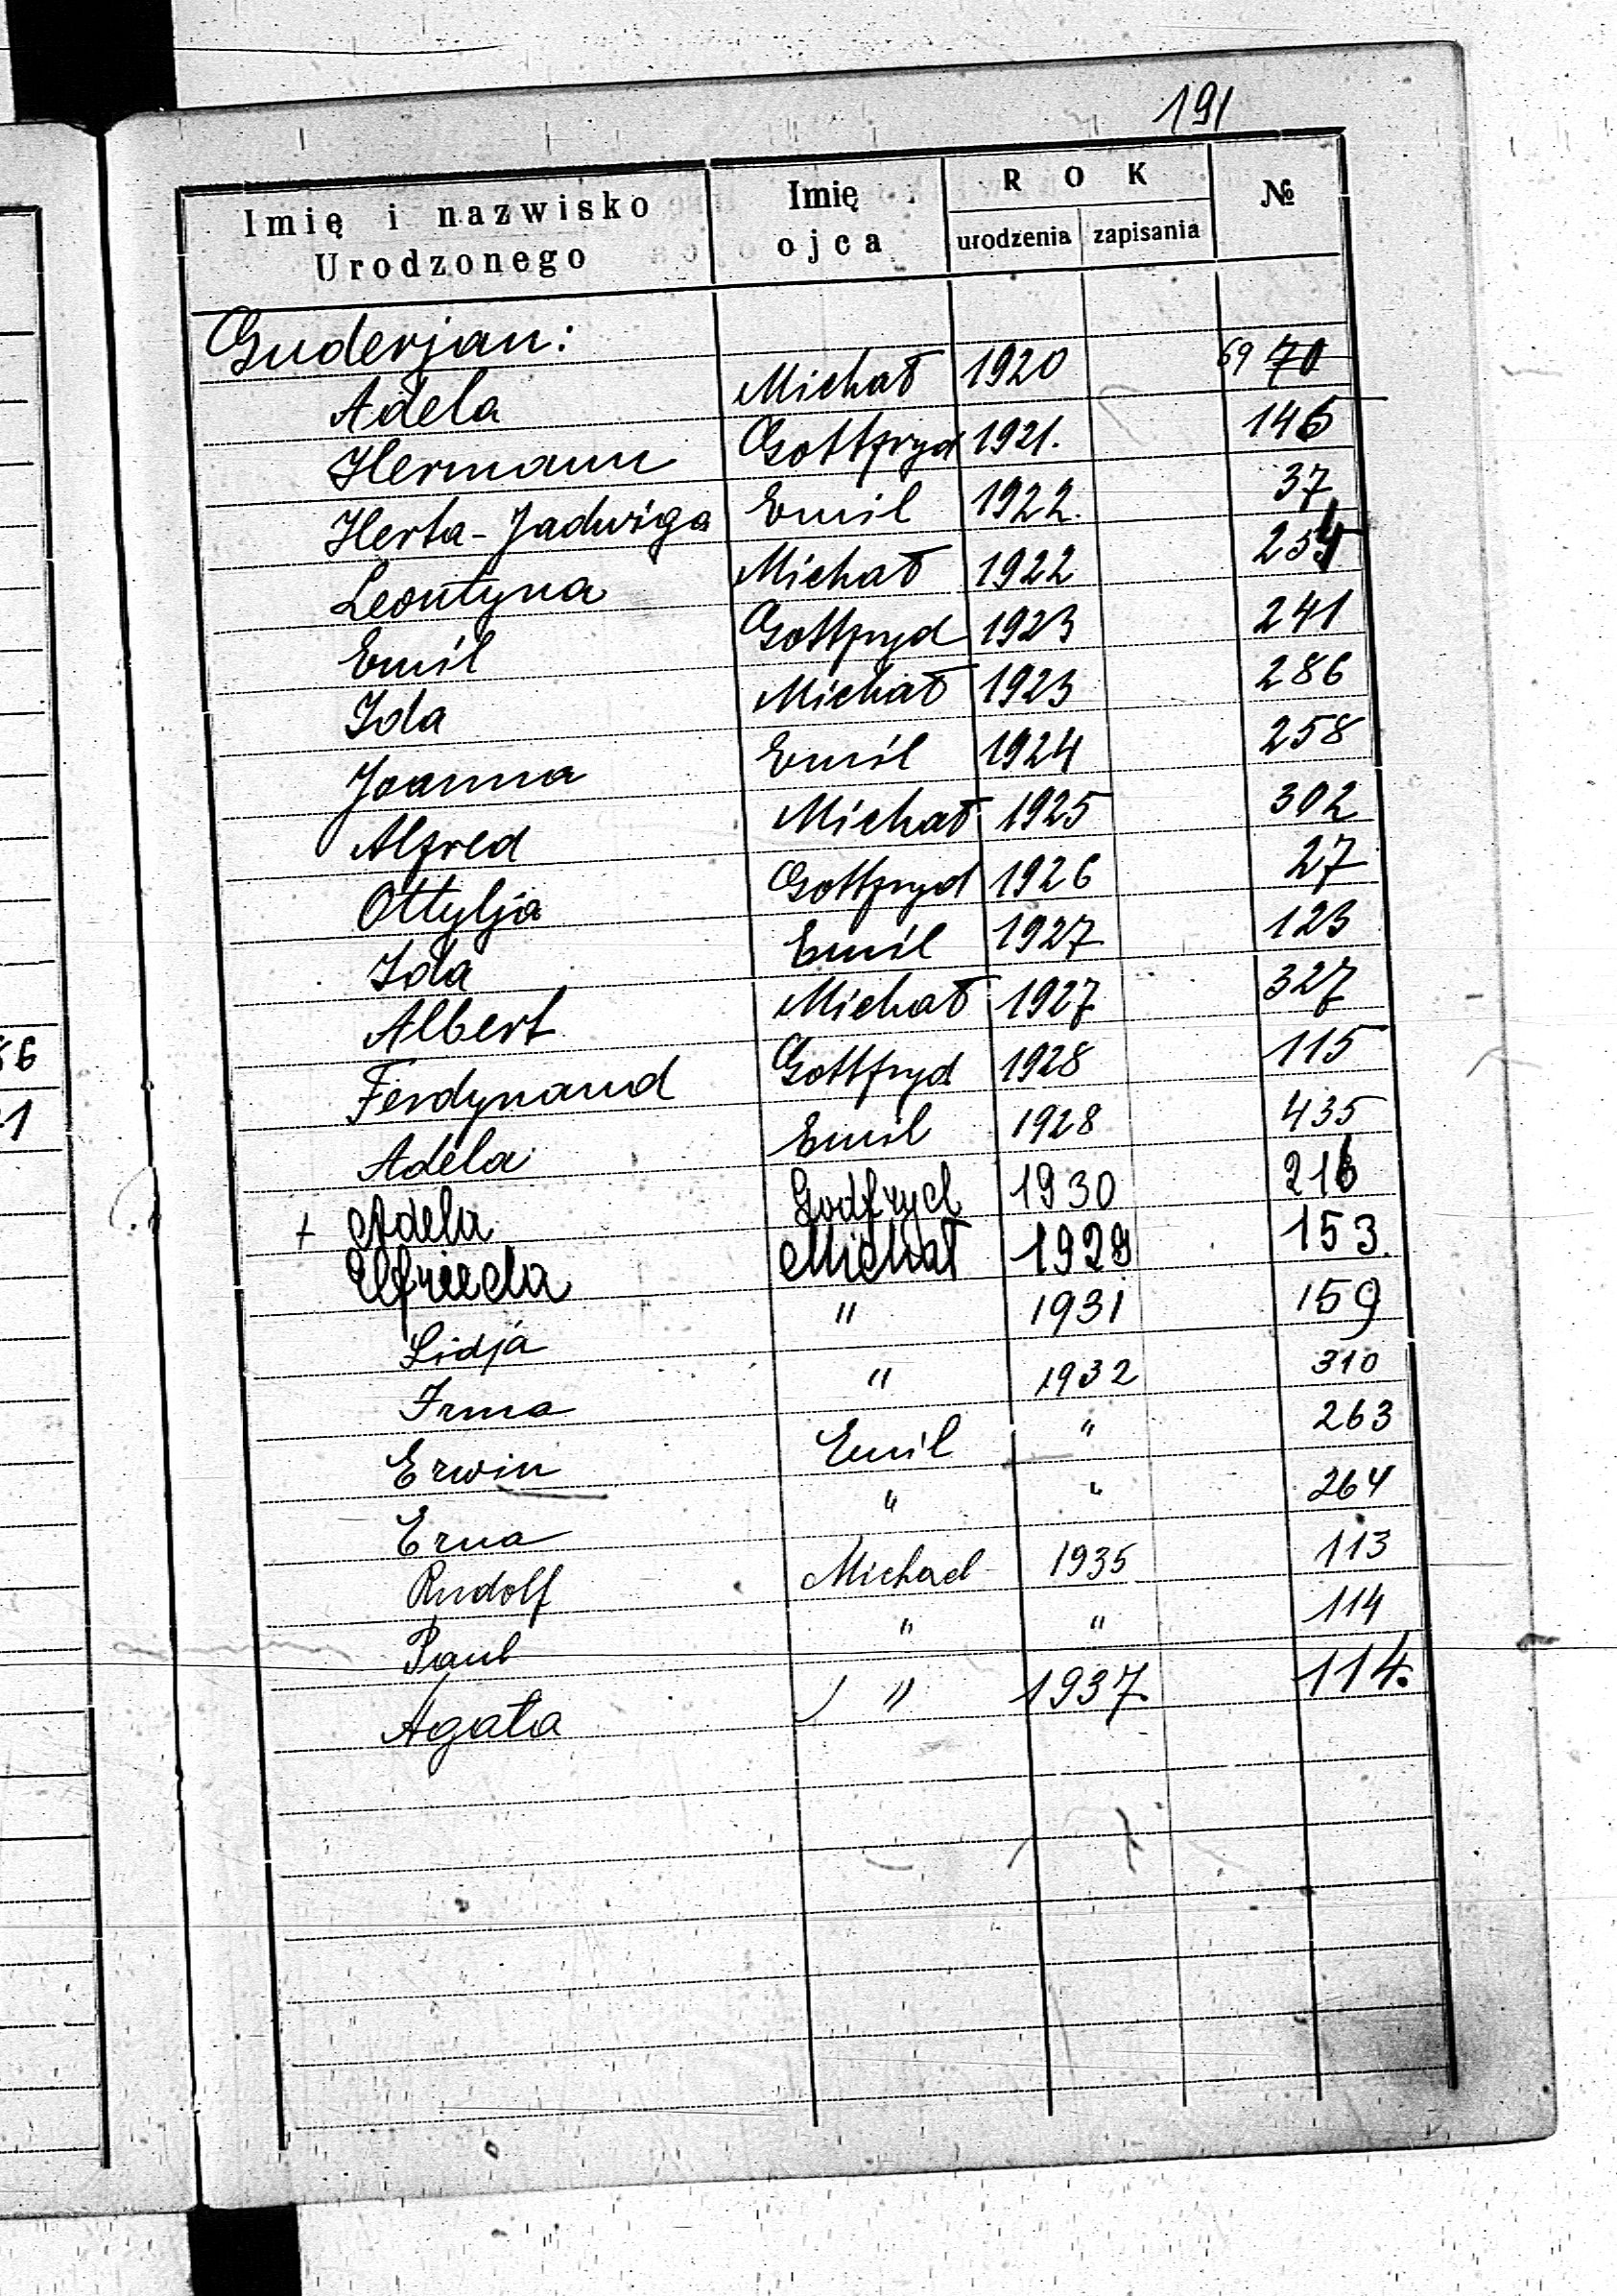 191
Imię i nazwisko Urodzonego Imię ojca ROK urodzenia zapisania №
Guderjan:
Adela Michał 1920 69 70
Hermann Gottfryd 1921. 146
Herta-Jadwiga Emil 1922. 37
Leontyna Michał 1922 254
Emil Gottfryd 1923 241
Ida Michał 1923 286
Joanna Emil 1924 258
Alfred Michał 1925 302
Ottylja Gottfryd 1926 27
Ida Emil 1927 123
Albert Michał 1927 327
Ferdynand Gottfryd 1928 115
Adela Emil 1928 435
+ Adela Godfryd 1930 216
Elfrieda Michał 1929 153.
Lidja " 1931 159
Irma " 1932 310
Erwin Emil " 263
Erna " " 264
Rudolf Michael 1935 113
Paul " " 114
Agata " 1937. 114.
86
1